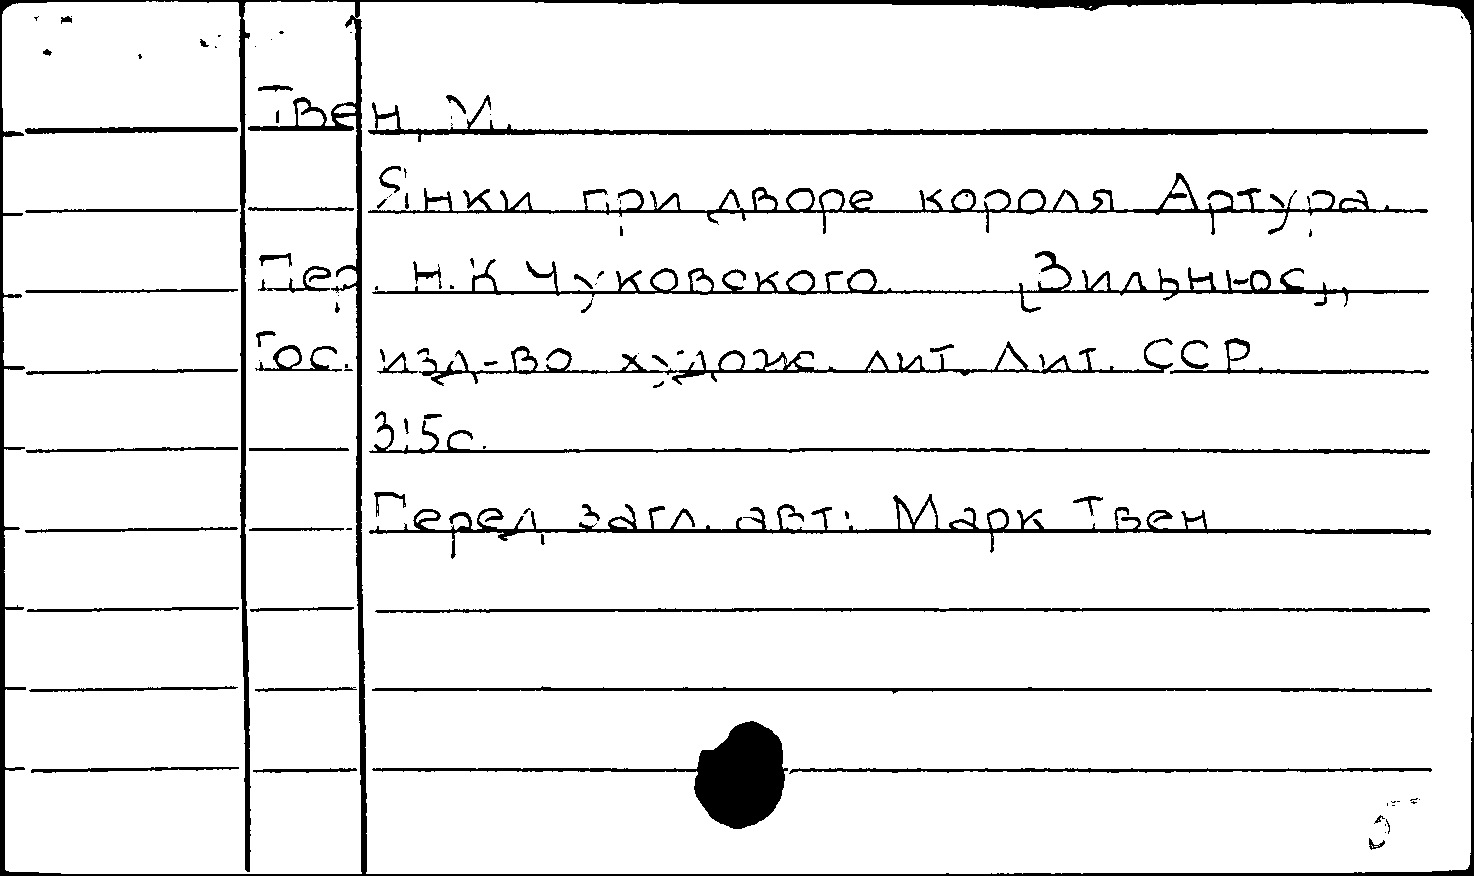 Твен, М.
Янки при дворе короля Артура.
Пер. Н. К Чуковского. [Зильнюс],
Гос. изд-во худож. лит. Лит. ССР.
315с.
Перед загл. авт: Марк Твен